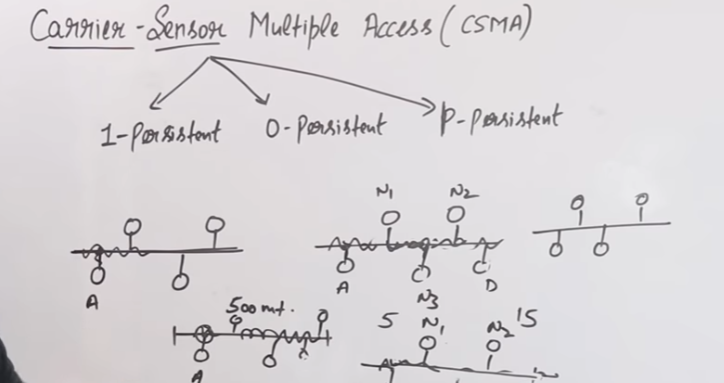 Carrier-Sensor Multiple Access (CSMA)
1-Persistent 0-Persistent P-Persistent
N1 N2
A A D
N3
500mt. 5 N1 N2 15
A